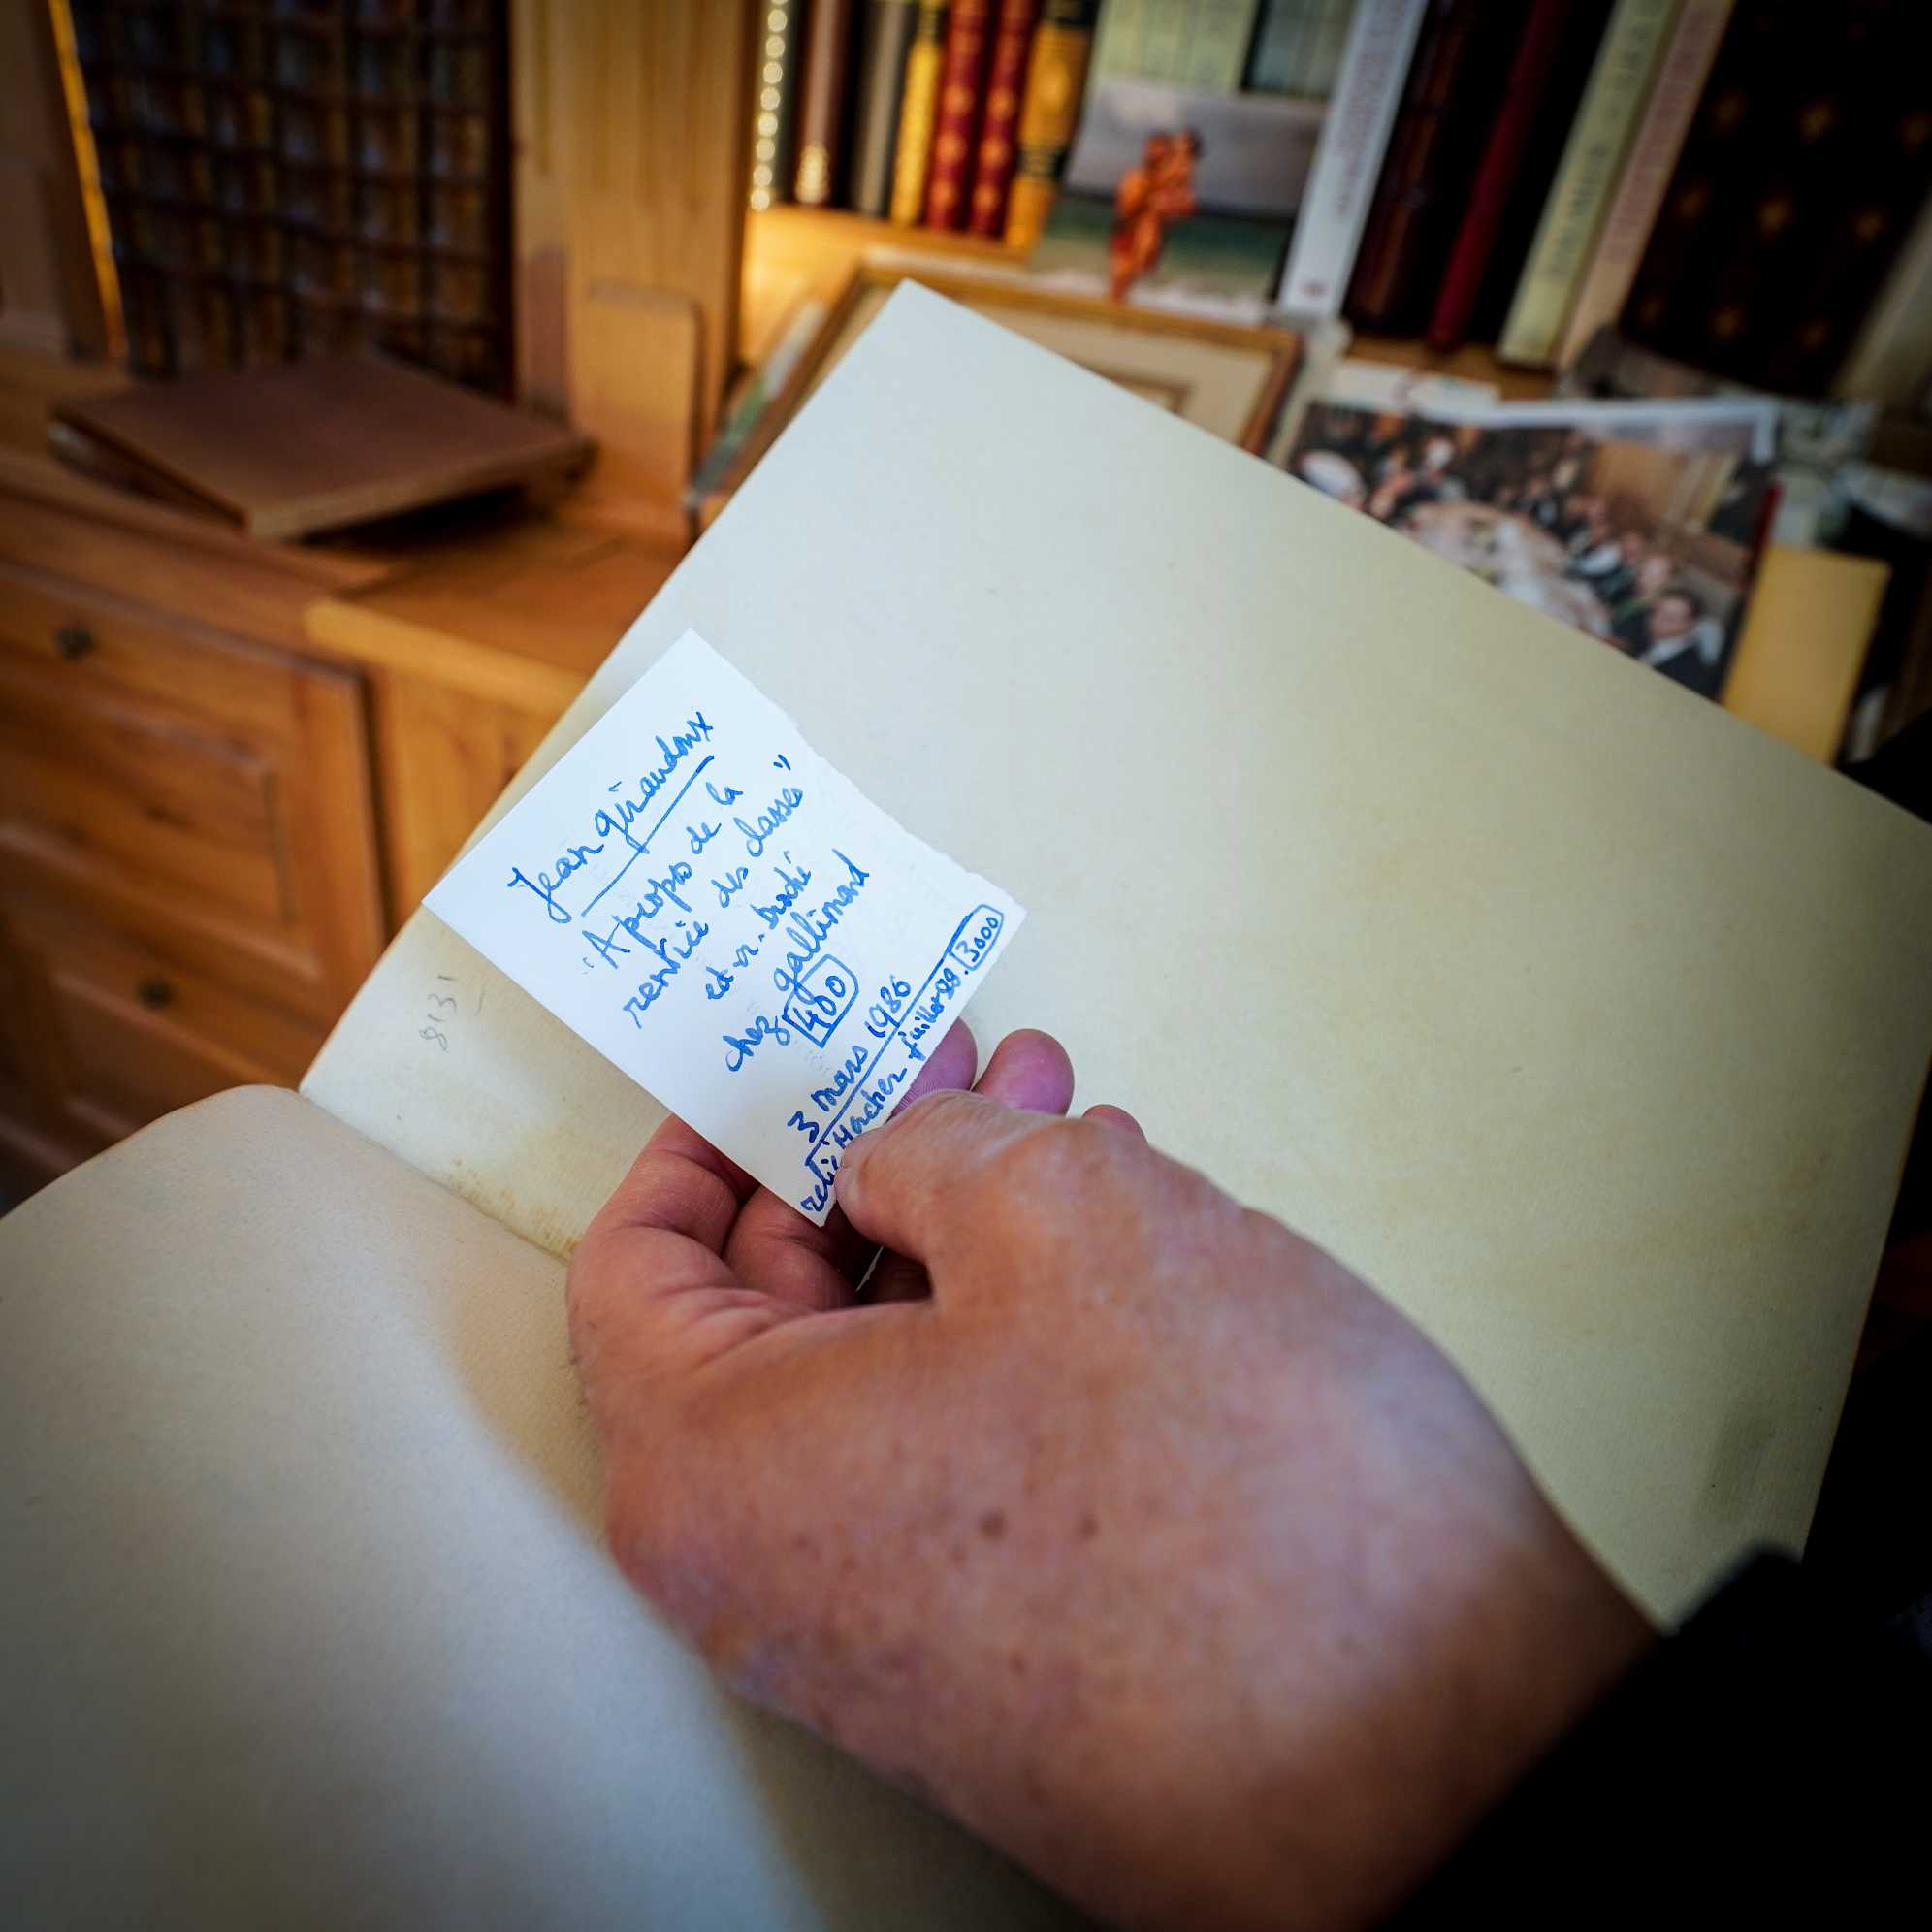 Jean Giraudoux
"A propos de la
rentrée des classes"
ed. or. broché
chez gallimard
400
3 mars 1986
relié Horcher juillet 89. 3000
813